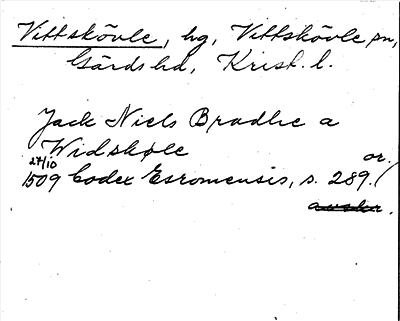 Vittskövle, hg, Vittskövle sn,
Gärds hd, Krist. l.
Jack Niels Bradhe a
Widskøle
27/10 or.
1509 Codex Esromensis, s. 289. (
avskr.